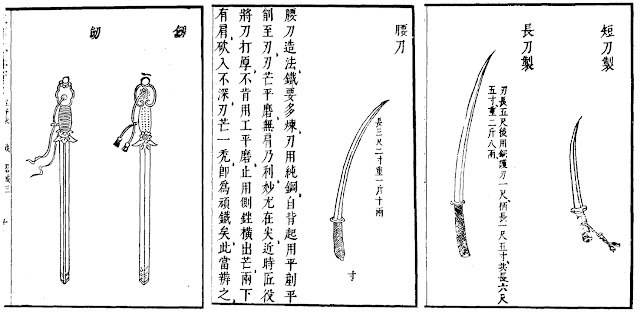 短刀製
長刀製
刃長五尺後用銅護刃一尺柄長一尺五寸共長六尺
五寸重二斤八兩
腰刀
長三尺二寸重一斤十兩
寸
腰刀造法鐵要多煉刃用純鋼自背起用平剷平
削至刃刃芒平磨無肩乃利妙尤在尖近時匠役
將刀打厚不肯用工平磨止用側銼橫出芒兩下
有肩砍入不深刃芒一禿卽爲頑鐵矣此當辨之